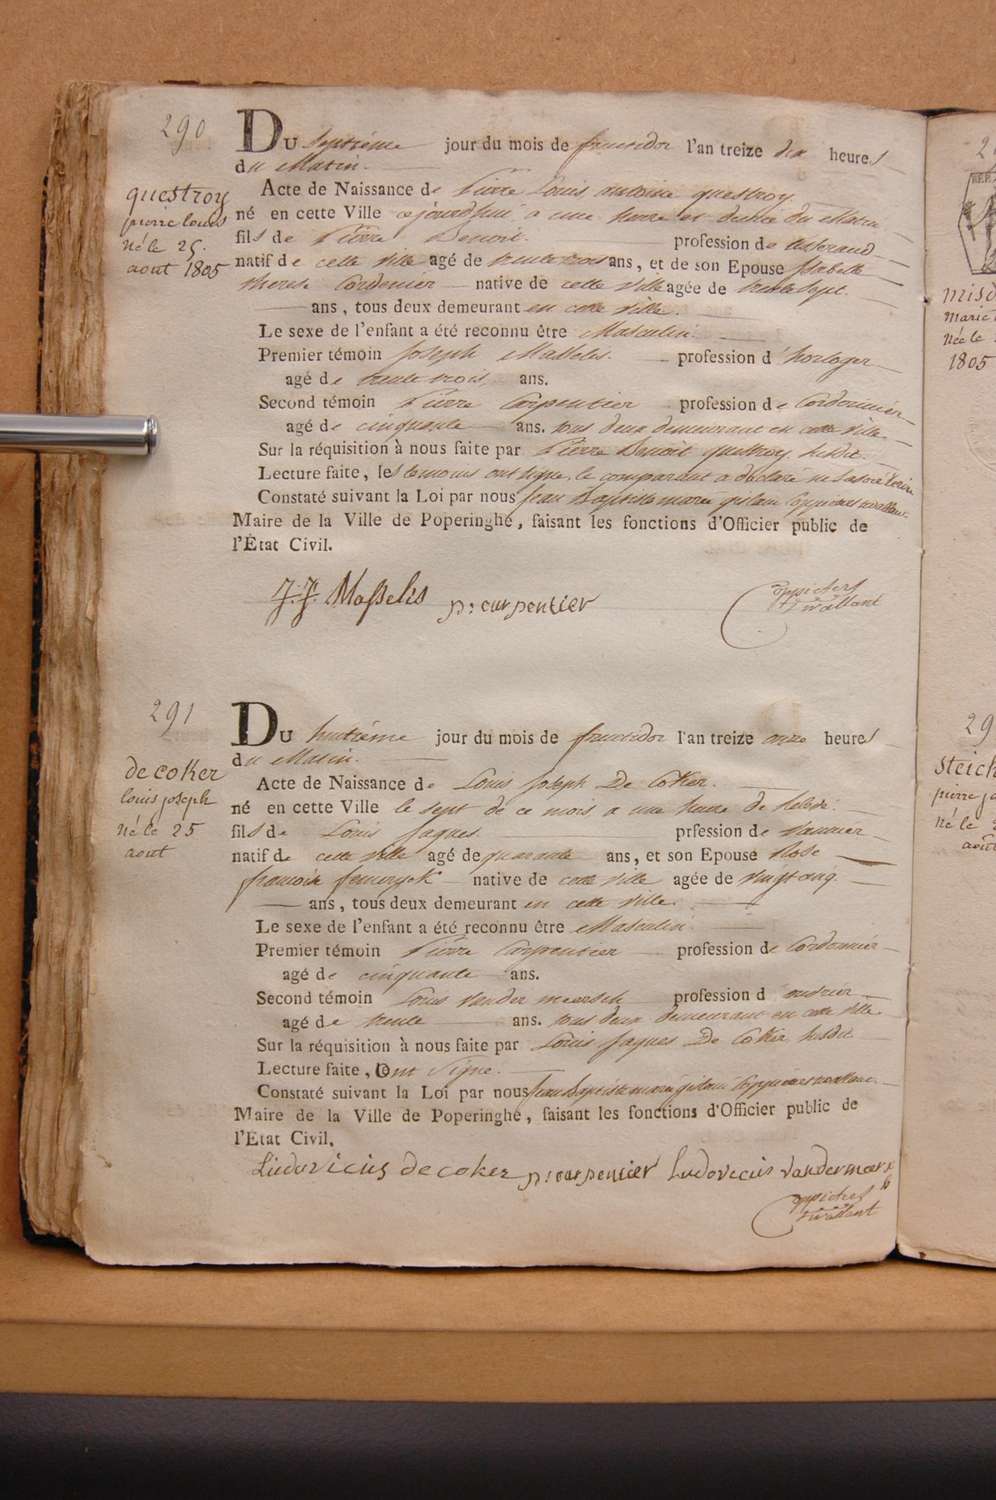 290
DU septiéme jour du mois de fructidor l'an treize dix heures
du Matin.
questroy
pierre louis
né le 25.
aout 1805
Acte de Naissance de Pierre Louis antoine questroy
né en cette Ville cejourd'hui a une heure et demie du Matin
fils de Pierre Benoit profession de tisserand
natif de cette ville agé de trente trois ans, et de son Epouse Isabelle
therese Cordenier native de cette ville agée de trente sept
ans, tous deux demeurant en cette ville.
Le sexe de l'enfant a été reconnu être Masculin.
Premier témoin Joseph Masselis profession d'horloger
agé de trente trois ans.
Second témoin Pierre Carpentier profession de Cordonnier
agé de cinquante ans. tous deux demeurant en cette ville
Sur la réquisition à nous faite par Pierre Benoit questroy susdit
Lecture faite, les temoins ont signe, le comparant a declaré ne savoir ecrire
Constaté suivant la Loi par nous Jean Baptiste
Maire de la Ville de Poperinghe, faisant les fonctions d'Officier public de
l'État Civil.
J: J: Masselis p: carpentier
291
DU huitiéme jour du mois de fructidor l'an treize onze heures
du Matin.
de coker
louis joseph
né le 25
aout
Acte de Naissance de Louis Joseph De Coker.
né en cette Ville le sept de ce mois a une heure de relevée
fils de Louis Jaques prfession de vannier
natif de cette ville agé de quarante ans, et son Epouse Rose
native de cette ville agée de vingt cinq
ans, tous deux demeurant en cette ville.
Le sexe de l'enfant a été reconnu être Masculin
Premier témoin Pierre Carpentier profession de Cordonnier
agé de cinquante ans.
Second témoin Louis vander meersch profession d'ouvrier
agé de trente ans. tous deux demeurant en cette ville
Sur la réquisition à nous faite par Louis Jaques De Coker susdit
Lecture faite, ont signe.
Constaté suivant la Loi par nous Jean Baptiste
Maire de la Ville de Poperinghe, faisant les fonctions d'Officier public de
l'Etat Civil.
Ludovicus de coker p: carpentier Ludovicus vandermeers
marie
née le
1805
pierre
né le
aout